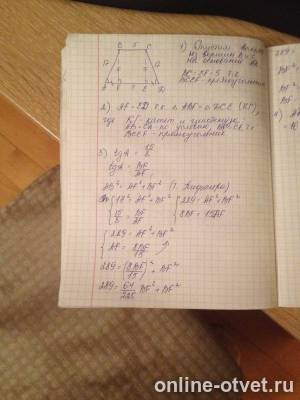 B 5 C
17 17
A F 5 E D
1) Опустим высоты
из вершин B и C
на основание AD
BC = EF = 5 т.к.
BCEF - прямоугольник
2) AF = ED т.к. △ ABF = △ DCE (КГ),
где КГ - катет и гипотенуза
AB = CD по условию, BF = CE т.к.
BCEF - прямоугольник
3) tgA = 15/8
tgA = BF/AF
AB² = AF² + BF² (т. Пифагора)
{ 17² = AF² + BF² { 289 = AF² + BF²
{ 15/8 = BF/AF { 8BF = 15AF
{ 289 = AF² + BF²
{ AF = 8BF/15
289 = (8BF/15)² + BF²
289 = 64/225 BF² + BF²
289 =
BF²
BF
4)
online-otvet.ru